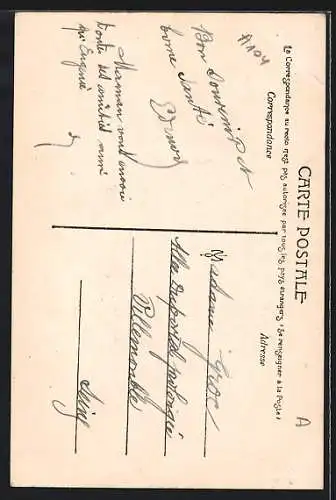 CARTE POSTALE
La Correspondance au recto n'est pas autorisée par tous les pays étrangers (Se renseigner à la Poste)
Correspondance
Adresse
Bon Souvenir et
bonne Santé
Maman vous envoie
toutes ses amitiés ainsi
Eugénie
Madame
Allée
Villemomble
Seine
A